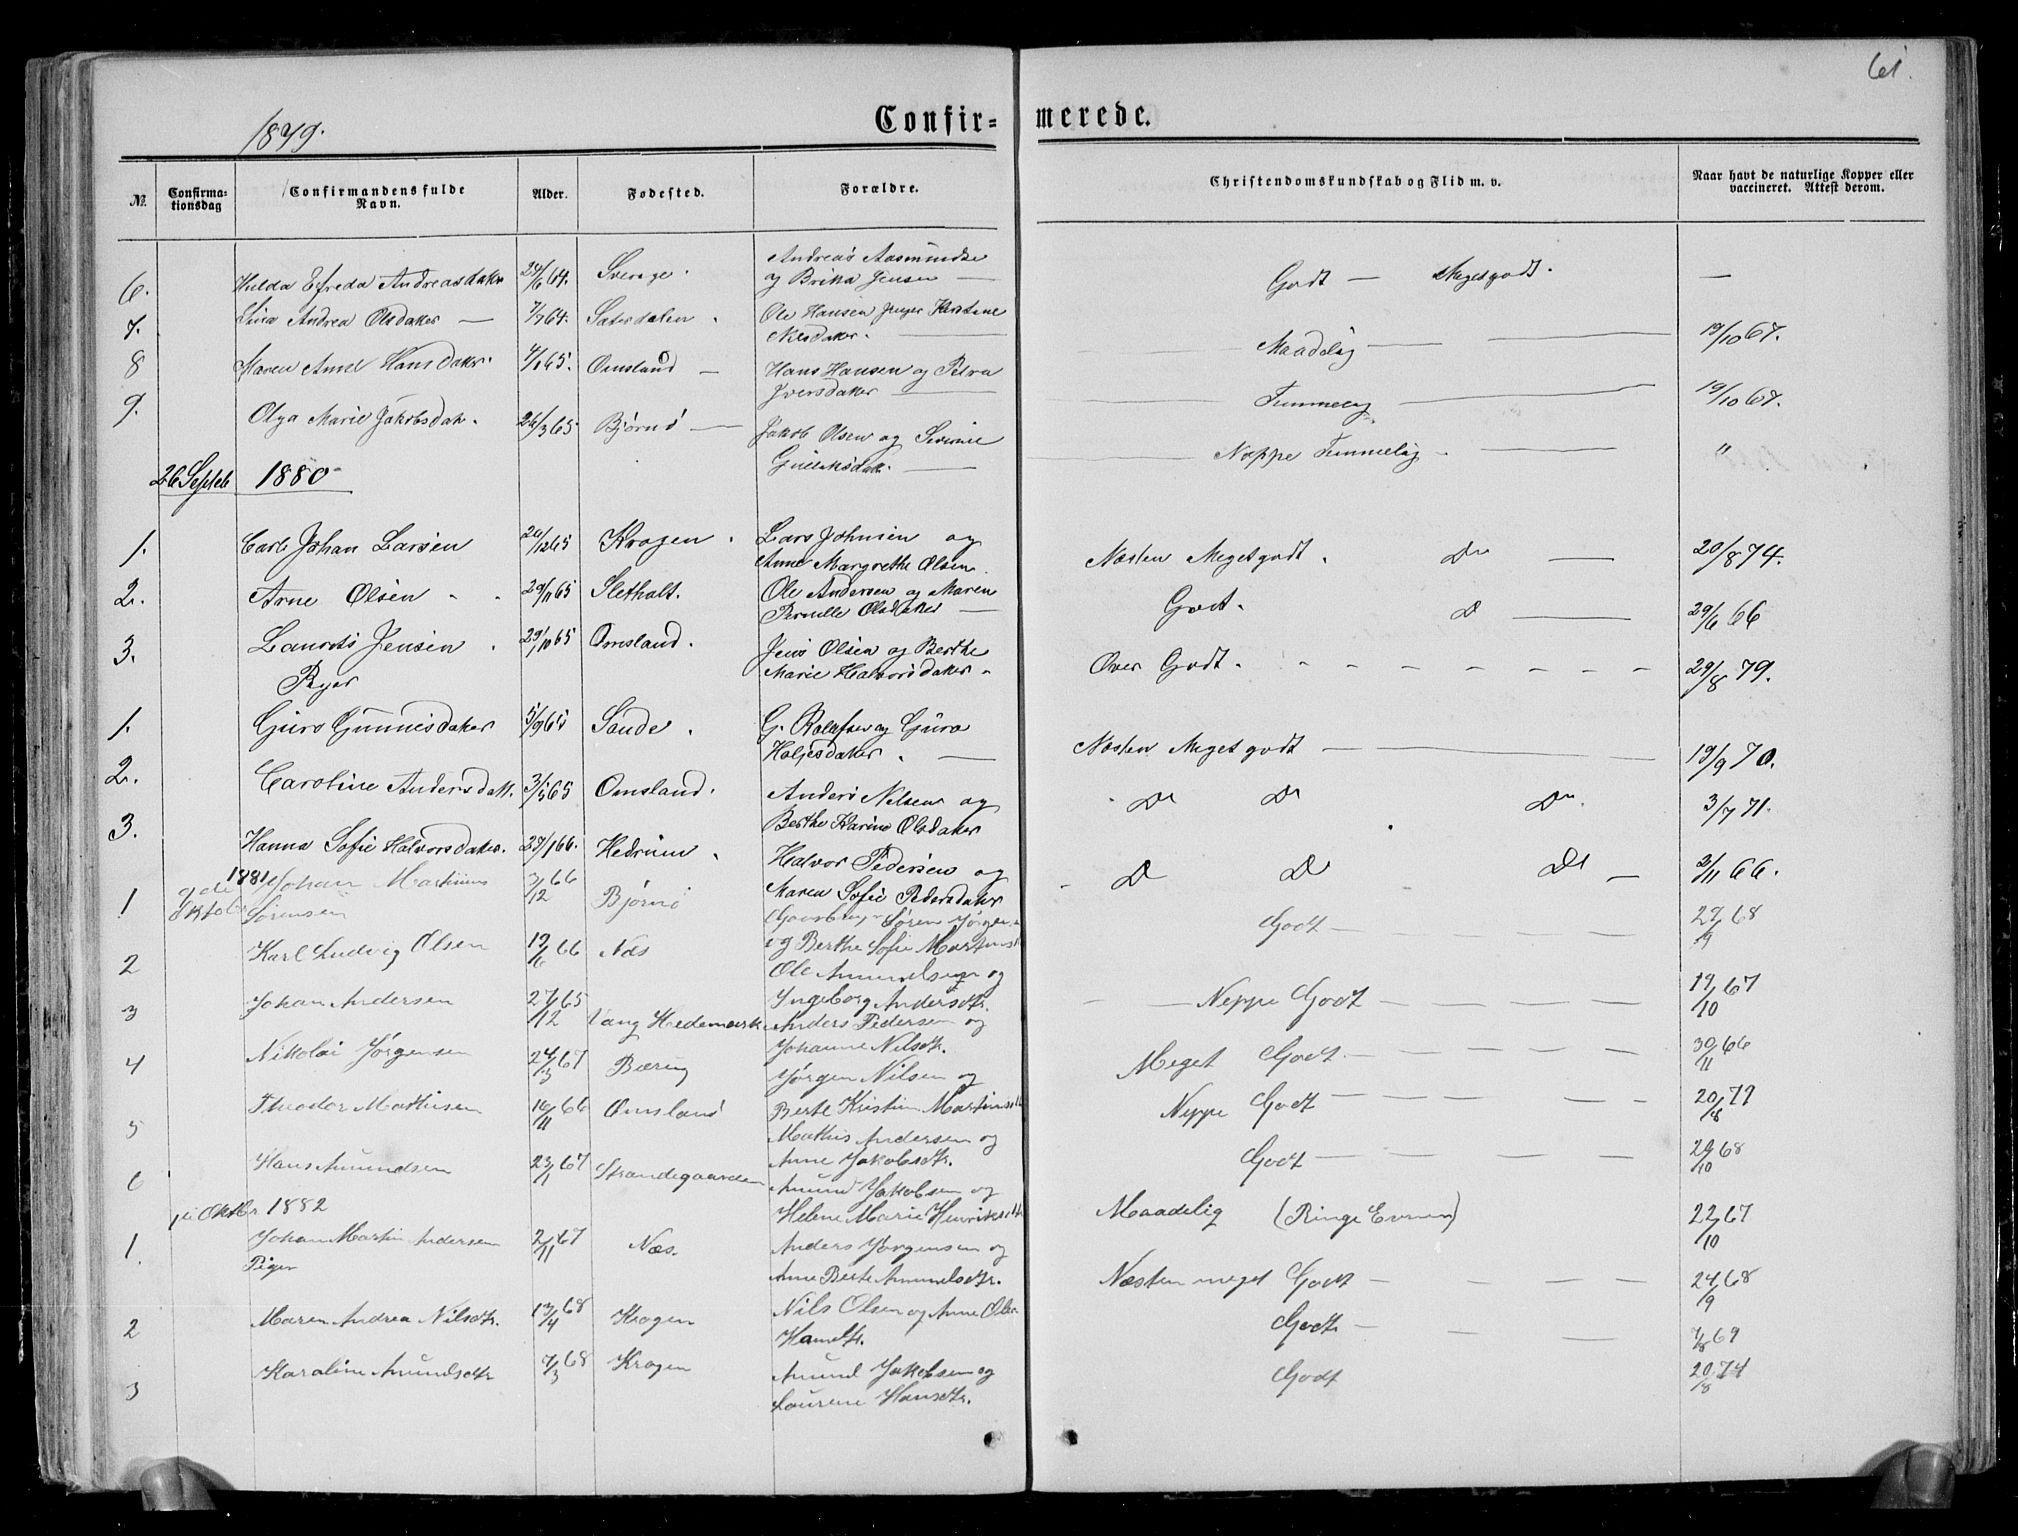 61.
1879.
Confir= merede.
№. Confirma-tionsdag Confirmandens fulde Navn. Alder. Fødested. Forældre. Christendomskundskab og Flid m. v. Naar havt de naturlige Kopper eller vaccineret. Attest derom.
6. Hulda Efreda Andreasdatter 24/6 64. Sverige. Andreas Aasmundse og Brika Jensen — Godt — Megetgodt. —
7. Lina Andrea Olsdatter — 7/7 64. Sæterdalen. Ole Hansen Kirstine Nilsdatter. — Maadelig — 19/10 67.
8 Maren Anne Hansdatter 4/1 65. Omsland — Hans Hansen og Petra Iversdatter — Temmelig — 19/10 67.
9. Olga Marie Jakobsdatr. 26/3 65 Bjørnø — Jakob Olsen og Severine Gulliksdatr. — Neppe Temmelig — "
26 Septb 1880
1. Carl Johan Larsen 26/12 65 Krogen. Lars Johnsen og Anne Margrethe Olsen. Næsten Megetgodt. Do — 20/8 74.
2. Arne Olsen 29/11 65 Sletholt. Ole Andersen og Maren Pernille Olsdatter — Godt. D — 29/6 66
3. Laurits Jensen 29/10 65 Omsland. Jens Olsen og Berthe Marie Halvorsdatter Over Godt. - - - - - - 29/8 79.
Piger
1. Guro Gunnesdatter 5/9 65 Sande. G. Rolafsen og Guro Holjesdatter. — Næsten Megetgodt — 19/9 70.
2. Caroline Andersdatt. 3/5 65 Omsland. Anders Nilsen og Berthe Karine Olsdatter Do Do Do 3/7 71.
3. Hanna Sofie Halvorsdatter. 29/1 66. Hedrum. Halvor Pedersen og Maren Sofie Pedersdatter D D D — 2/11 66.
9de Oktobr 1881
1 Johan Martinius Sørensen 3/12 66 Bjørnø Søren Jørgen og Berthe Sofie Martinsdt Godt — 27/9 68
2 Karl Ludvig Olsen 19/6 66 Næs Ole Amundsen og Ingeborg Andersdtr. — Neppe Godt — 19/10 67
3 Johan Andersen 27/12 65 Vang Hedemark Anders Pedersen og Johanne Nilsdtr. Meget Godt — 30/11 66
4 Nikolai Jørgensen 24/3 67 Bæring Jørgen Nilsen og Berte Kristin Martinsdt Neppe Godt — 20/8 77
5 Theodor Mathisen 16/11 66 Omsland Mathis Andersen og Anne Jakobsdtr. Godt — 29/10 68
6 Hans Amundsen 23/1 67 Strandegaarden Amund Jakobsen og Helene Marie Henriksdt Maadelig (Ringe Evner) 22/10 67
1ste Oktbr 1882
1. Johan Martin Andersen 2/11 67 Næs. Anders Jørgensen og Anne Berte Amundsdtr. Næsten meget Godt — 24/9 68
Piger
2 Maren Andrea Nilsdtr. 13/4 68 Krogen Nils Olsen og Anne Olea Hansdtr. Godt — 7/8 69
3 Karoline Amundsdtr 7/3 68 Krogen Amund Jakobsen og Laurene Hansdtr. Godt 20/8 74